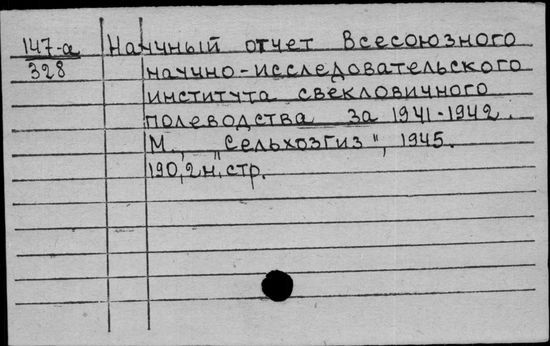 147-а Научный отчет Всесоюзного
328 научно-исследовательского
института свекловичного
полеводства за 1941-1942.
М., „Сельхозгиз", 1945.
190,2н.стр.